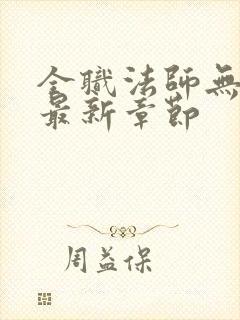 全職法師無
最新章節
周益保